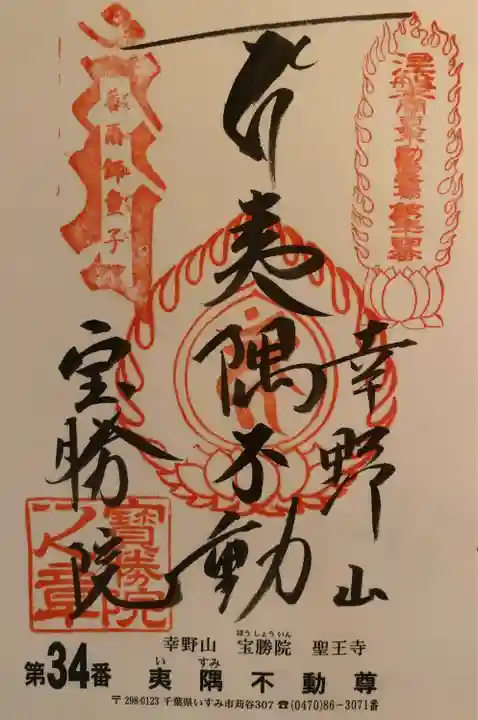 善爾師童子
幸野山
夷隅不動
宝勝院
寳勝院
之章
幸野山 宝勝院 聖王寺
ほうしょういん
第34番 夷隅不動尊
いすみ
〒298-0123 千葉県いすみ市苅谷307 ☎(0470)86-3071番